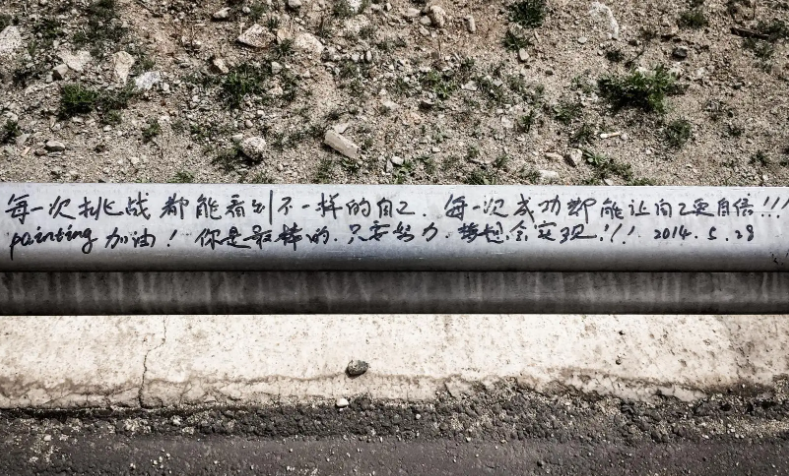 每一次挑战都能看到不一样的自己. 每一次成功都能让自己更自信!!!
painting 加油! 你是最棒的. 只要努力. 梦想会实现!!! 2014.5.29